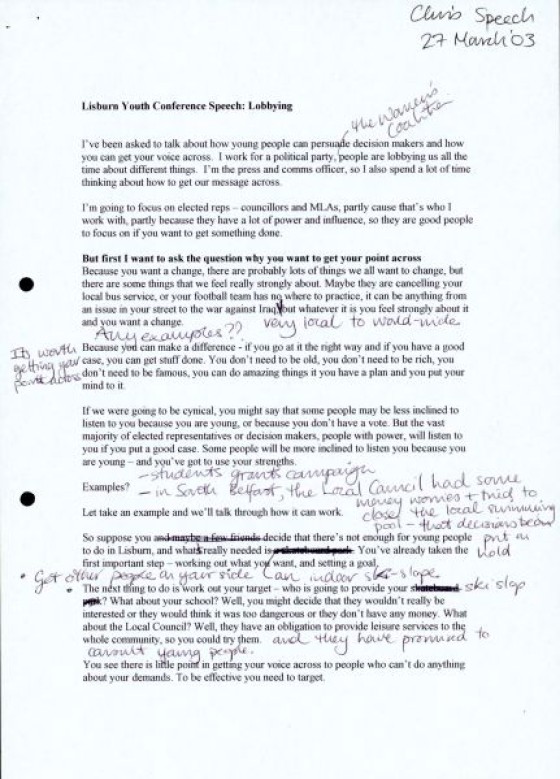 Chris Speech
27 March '03
Lisburn Youth Conference Speech: Lobbying
the Women's
Coalition
I've been asked to talk about how young people can persuade decision makers and how
you can get your voice across. I work for a political party, people are lobbying us all the
time about different things. I'm the press and comms officer, so I also spend a lot of time
thinking about how to get our message across.
I'm going to focus on elected reps – councillors and MLAs, partly cause that's who I
work with, partly because they have a lot of power and influence, so they are good people
to focus on if you want to get something done.
But first I want to ask the question why you want to get your point across
Because you want a change, there are probably lots of things we all want to change, but
there are some things that we feel really strongly about. Maybe they are cancelling your
local bus service, or your football team has no where to practice, it can be anything from
an issue in your street to the war against Iraq, but whatever it is you feel strongly about it
and you want a change. very local to world-wide
Any examples??
Its worth
getting your
point across
Because you can make a difference - if you go at it the right way and if you have a good
case, you can get stuff done. You don't need to be old, you don't need to be rich, you
don't need to be famous, you can do amazing things it you have a plan and you put your
mind to it.
If we were going to be cynical, you might say that some people may be less inclined to
listen to you because you are young, or because you don't have a vote. But the vast
majority of elected representatives or decision makers, people with power, will listen to
you if you put a good case. Some people will be more inclined to listen you because you
are young – and you've got to use your strengths.
- students grants campaign
Examples? - in South Belfast, the Local Council had some
money worries + tried to
close the local swimming
pool - that decisions been
put on
hold
Let take an example and we'll talk through how it can work.
So suppose you and maybe a few friends decide that there's not enough for young people
to do in Lisburn, and what's really needed is a skateboard park. You've already taken the
first important step – working out what you want, and setting a goal.
• Get other people on your side (an indoor ski-slope
• The next thing to do is work out your target – who is going to provide your skateboard ski slop
park? What about your school? Well, you might decide that they wouldn't really be
interested or they would think it was too dangerous or they don't have any money. What
about the Local Council? Well, they have an obligation to provide leisure services to the
whole community, so you could try them. and they have promised to
consult young people.
You see there is little point in getting your voice across to people who can't do anything
about your demands. To be effective you need to target.